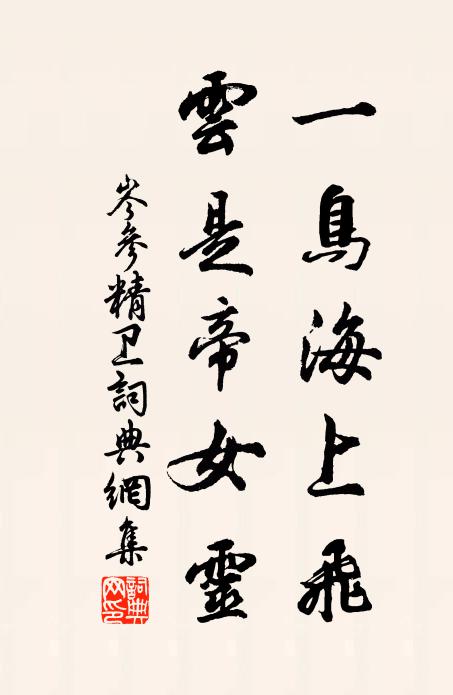 一鳥海上飛
雲是帝女靈
岑參精卫詞典網集
詞典
网印